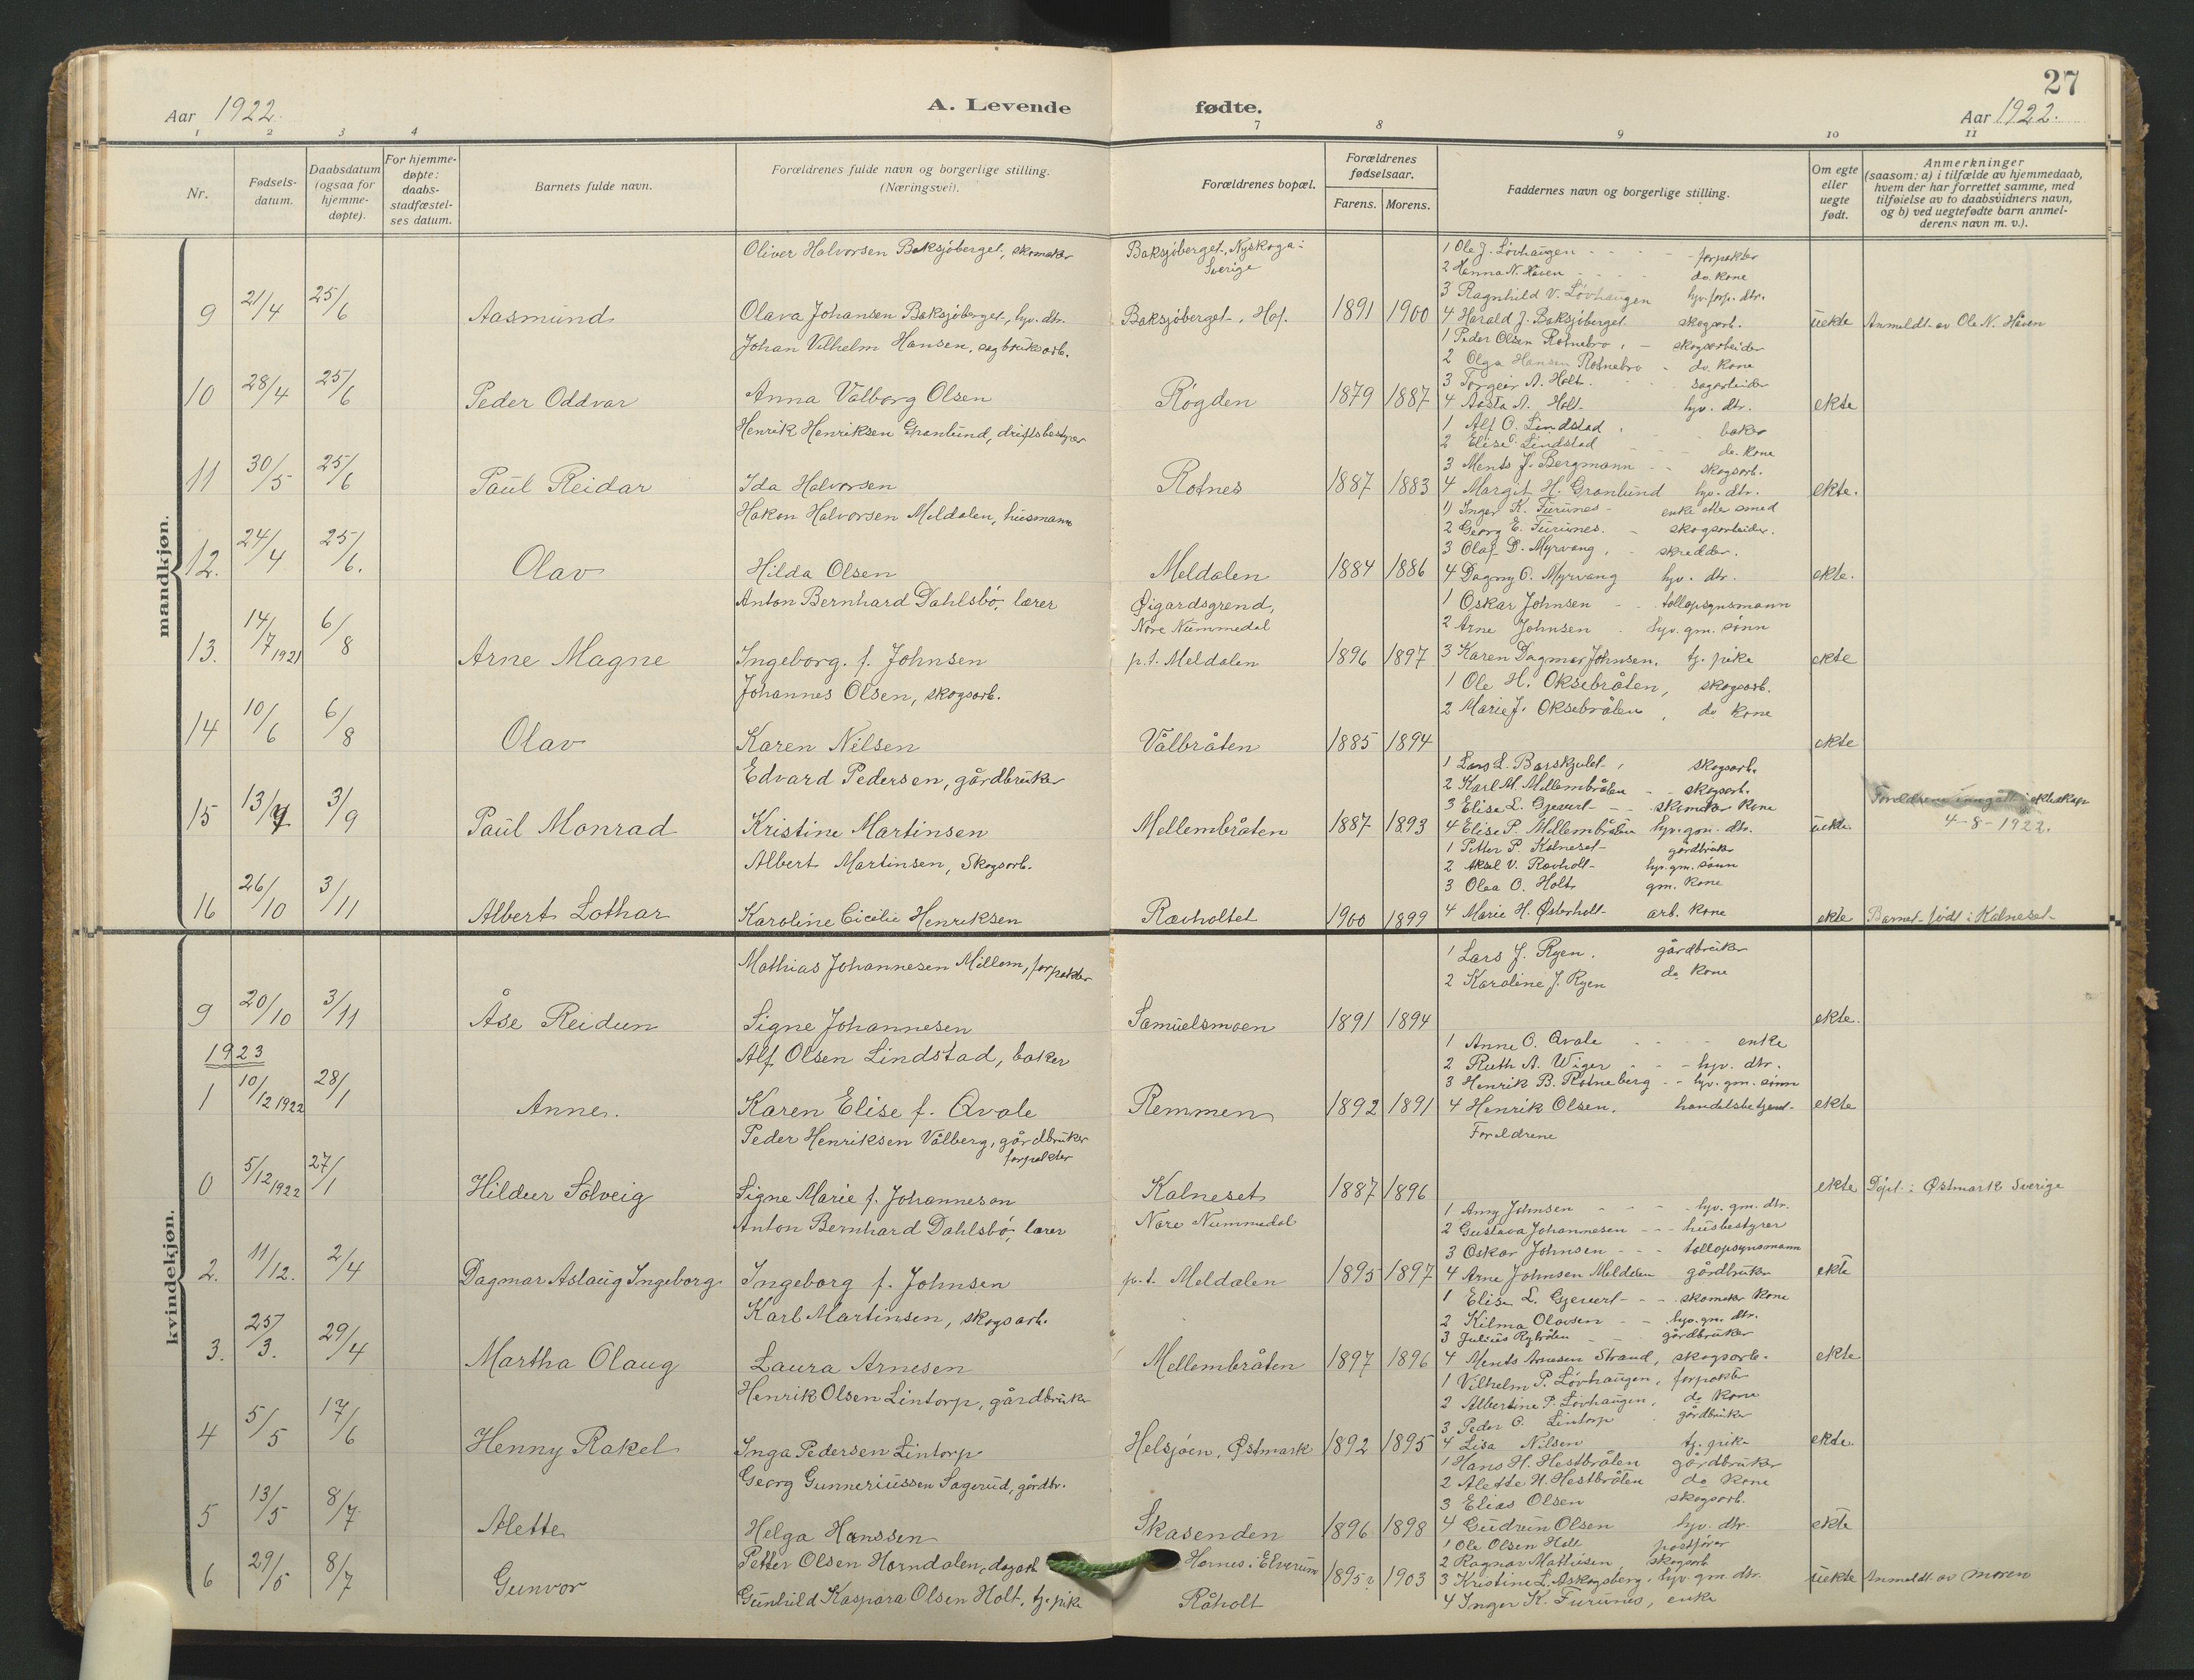 27
Aar 1922.
A. Levende fødte.
Aar 1922.
1 2 3 4 7 8 9 10 11
Nr.
Fødsels-
datum.
Daabsdatum
(ogsaa for
hjemme-
døpte).
For hjemme-
døpte:
daabs-
stadfæstel-
ses datum.
Barnets fulde navn.
Forældrenes fulde navn og borgerlige stilling.
(Næringsvei).
Forældrenes bopæl.
Forældrenes
fødselsaar.
Farens. Morens.
Faddernes navn og borgerlige stilling.
Om egte
eller
uegte
født.
Anmerkninger
(saasom: a) i tilfælde av hjemmedaab,
hvem der har forrettet samme, med
tilføielse av to daabsvidners navn,
og b) ved uegtefødte barn anmel-
derens navn m. v.).
mandkjøn.
Oliver Halvorsen Baksjøberget, skomaker
Baksjøberget, Nyskoga i
Sverige
1 Ole J. Løvhaugen - - forpakter
2 Hanna N. Haven - - do. kone
3 Ragnhild V. Løvhaugen hjv. forp. dtr.
9 21/4 25/6 Aasmund Olava Johansen Baksjøberget, hjv. dtr. Baksjøberget, Hof. 1891 1900 4 Harald J. Baksjøberget skogsarb. uekte Anmeldt av Ole N. Haven
Johan Vilhelm Hansen, sagbruksarb.
1 Peder Olsen Rotnebro, - skogsarbeider
2 Olga Hansen Rotnebro - do. kone
3 Torgeir A. Holt. sagarbeider
10 28/4 25/6 Peder Oddvar Anna Valborg Olsen Røgden 1879 1887 4 Aasta A. Holt hjv. dtr. ekte
Henrik Henriksen Grønlund, driftsbestyrer
1 Alf O. Lindstad, baker
2 Elise Lindstad - do. kone
3 Ments J. Bergmann - - skogsarb.
11 30/5 25/6 Paul Reidar Ida Halvorsen Rotnes 1887 1883 4 Margit H. Grønlund hjv. dtr. ekte.
Hakon Halvorsen Meldalen, husmann
1 Inger K. Furunes - enke etter smed
2 Georg E. Furunes. - skogsarbeider.
3 Olaf D. Myrvang, - skredder.
12. 24/4 25/6. Olav Hilda Olsen Meldalen 1884 1886 4 Dagny O. Myrvang hjv. dtr. ekte.
Anton Bernhard Dahlsbø, lærer
Øigardsgrend,
Nore Nummedal
1 Oskar Johnsen - - tollopsynsmann
2 Arne Johnsen. hjv. gm. sønn
13. 14/7 1921 6/8 Arne Magne Ingeborg. f. Johnsen p.t. Meldalen 1896 1897 3 Karen Dagmar Johnsen. tj. pike ekte
Johannes Olsen, skogsarb.
1 Ole H. Oksebråten, skogsarb.
2 Marie J. Oksebråten, do kone
14 10/6 6/8 Olav Karen Nilsen Vålbråten 1885 1894 ekte
Edvard Pedersen, gårdbruker
1 Lars L. Barskjulet, skogsarb.
2 Karl M. Mellembråten - - skogsarb.
3 Elise L. Gjevert - - skomaker kone
Foreldrene inngått ekteskap
15 13/7 3/9 Paul Monrad Kristine Martinsen Mellembråten 1887 1893 4 Elise P. Mellembråten hjv. gm. dtr. uekte 4-8-1922.
Albert Martinsen, Skogsarb.
1 Petter P. Kalneset - gårdbruker
2 Aksel V. Rævholt - hjv. gm. sønn
3 Olea O. Holt gm. kone
16 26/10 3/11 Albert Lothar Karoline Cicilie Henriksen Rævholtet 1900 1899 4 Marie H. Østerholt - arb. kone ekte Barnet født i Kalneset
kvindekjøn.
Mathias Johannesen Millom, forpakter
1 Lars J. Ryen. gårdbruker
2 Karoline J. Ryen do kone
9 20/10 3/11 Åse Reidun Signe Johannesen Samuelsmoen 1891 1894 ekte.
1923
Alf Olsen Lindstad, baker
1 Anne O. Qvale - - - enke
2 Ruth A. Wiger - - hjv. dtr.
3 Henrik B. Rotneberg - - hjv. gm. sønn
1 10/12 1922 28/1 Anne. Karen Elise f. Qvale Remmen 1892 1891 4 Henrik Olsen. handelsbetjent - ekte
Peder Henriksen Vålberg, gårdbruker
forpakter
Foreldrene
0 5/12 1922 27/1 Hildur Solveig Signe Marie f. Johanneson Kalneset 1887 1896 ekte Døpt i Østmark Sverige
Anton Bernhard Dahlsbø, lærer
Nore Nummedal
1 Anny Johnsen - - - hjv. gm. dtr.
2 Gustava Johannesen - - - husbestyrer
3 Oskar Johnsen - - - tollopsynsmann
2. 11/12. 2/4 Dagmar Aslaug Ingeborg Ingeborg f. Johnsen p.t. Meldalen 1895 1897 4 Arne Johnsen Meldalen gårdbruker ekte
Karl Martinsen, skogsarb.
1 Elise L. Gjevert - - - skomaker kone
2 Kilma Olavsen - - hjv. gm. dtr.
3 Julius Rybråten - gårdbruker
3. 25/3. 29/4 Martha Olaug Laura Arnesen Mellembråten 1897 1896 4 Ments Arnesen Strand, skogsarb. ekte
Henrik Olsen Lintorp, gårdbruker
1 Vilhelm P. Løvhaugen, forpakter
2 Albertine P. Løvhaugen, do kone
3 Peder O. Lintorp gårdbruker
4 5/5 17/6 Henny Rakel Inga Pedersen Lintorp Helsjøen, Østmark 1892 1895 4 Lisa Nilsen tj. pike ekte.
Georg Gunneriussen Sagerud, gårdbr.
1 Hans H. Hestbråten gårdbruker
2 Alette H. Hestbråten do kone
3 Elias Olsen skogsarb.
5 13/5 8/7 Alette Helga Hanssen Skasenden 1896 1898 4 Gudrun Olsen hjv. dtr. ekte
Petter Olsen Horndalen, dagarb.
Hornes i Elverum
1 Ole Olsen Holt postfører
2 Ragnar Mathisen, skogsarb
6 29/5 8/7 Gunvor 1895? 1903 3 Kristine L. Askogsberg, hjv. gm. dtr. uekte Anmeldt av moren
Gunhild Kaspara Olsen Holt, tj. pike Råholt 4 Inger K. Furunes, enke